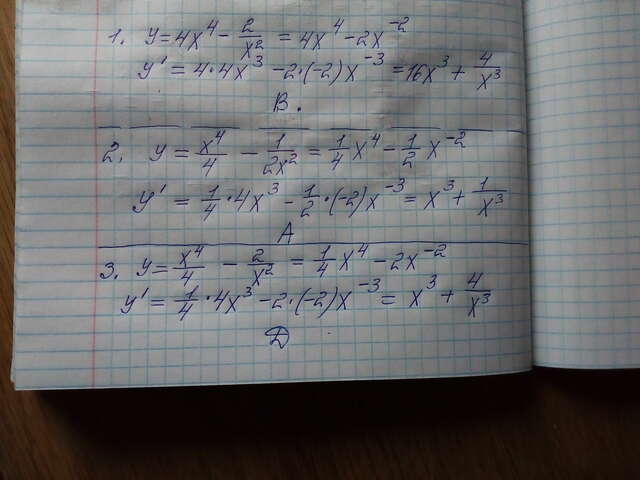 1. y=4x⁴-2/x² = 4x⁴-2x⁻²
y' = 4·4x³ -2·(-2)x⁻³ =16x³+4/x³
В.
2. y = x⁴/4 - 1/2x² = 1/4 x⁴ - 1/2 x⁻²
y' = 1/4·4x³ - 1/2·(-2)x⁻³ = x³+1/x³
А
3. y=x⁴/4 - 2/x² = 1/4 x⁴ - 2x⁻²
y' = 1/4·4x³ -2·(-2)x⁻³ = x³ + 4/x³
Д